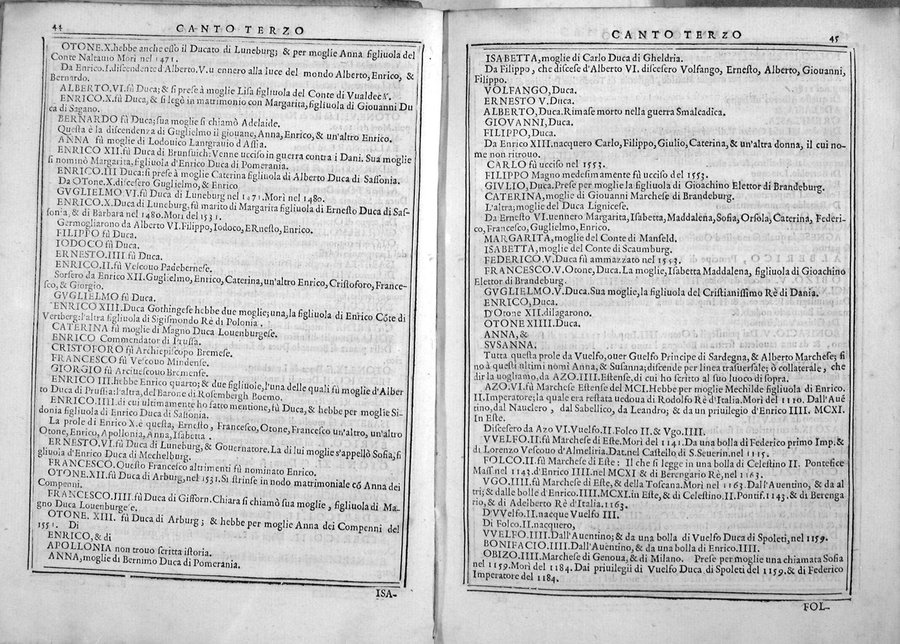 44
CANTO TERZO
OTONE.X.hebbe anche esso il Ducato di Luneburg; & per moglie Anna figliuola del
Conte Nassauio Mori nel 1471.
Da Enrico.I.discendente d'Alberto.V.uennero alla luce del mondo Alberto, Enrico, &
Bernardo.
ALBERTO.VI.fù Duca; & si prese à moglie Lisa figliuola del Conte di
ENRICO.X.fù Duca, & si legò in matrimonio con Margarita, figliuola di Giouanni Du
ca di Sagano.
BERNARDO fù Duca; sua moglie si chiamò Adelaide.
Questa è la discendenza di Guglielmo il giouane, Anna, Enrico, & un'altro Enrico.
ANNA fù moglie di Lodouico Lantgrauio d'Assia.
ENRICO XII.fù Duca di Brunsuich: Venne ucciso in guerra contra i Dani. Sua moglie
si nominò Margarita, figliuola d'Enrico Duca di Pomerania.
ENRICO.III Duca: si prese à moglie Caterina figliuola di Alberto Duca di Sassonia.
Da OTone.X.discesero Guglielmo, & Enrico
GVGLIELMO VI.fù Duca di Luneburg nel 1471. Mori nel 1480.
ENRICO.X.Duca di Luneburg, fù marito di Margarita figliuola di Ernesto Duca di Sas-
sonia, & di Barbara nel 1480.Mori del 1531.
Germogliarono da Alberto VI.Filippo, Iodoco, ERnesto, Enrico.
FILIPPO fù Duca.
IODOCO fù Duca.
ERNESTO.IIII fù Duca.
ENRICO.II.fù Vescouo Padebernese.
Sorsero da Enrico XII.Guglielmo, Enrico, Caterina, un'altro Enrico, Cristoforo, France-
sco, & Giorgio.
GVGLIELMO fù Duca.
ENRICO XIII.Duca Gothingese hebbe due moglie; una, la figliola di Enrico Cōte di
Vertberg: l'altra figliuola di Sigismondo Rè di Polonia.
CATERINA fù moglie di Magno Duca Louenburgese.
ENRICO Commendator di Prussia.
CRISTOFORO fù Archiepiscopo Bremese.
FRANCESCO fù Vescouo Mindense.
GIORGIO fù Arciuescouo Bremese.
ENRICO III.hebbe Enrico quarto; & due figliuole, l'una delle quali fù moglie d'Alber
to Duca di Prussia: l'altra, del Barone di Rosembergh Boemo.
ENRICO.IIII.di cui ultimamente ho fatto mentione, fù Duca, & hebbe per moglie Si-
donia figliuola di Enrico Duca di Sassonia.
La prole di Enrico X.è questa, Ernesto, Francesco, Otone, Francesco un'altro, un'altro
Otone, Enrico, Apollonia, Anna, Isabetta.
ERNESTO.VI.fù Duca di Luneburg, & Gouernatore. La di lui moglie s'appellò Sofia, fi
gliuola d'Enrico Duca di Mechelburg.
FRANCESCO. Questo Francesco altrimenti fù nominato Enrico.
OTONE.XII.fù Duca di Arburg, nel 1531. Si strinse in nodo matrimoniale cō Anna dei
Compenni.
FRANCESCO.IIII.fù Duca di Gifforn. Chiara si chiamò sua moglie, figliuola di Ma-
gno Duca Louenburgese.
OTONE. XIII. fù Duca di Arburg; & hebbe per moglie Anna dei Compenni del
1551. Di
ENRICO, & di
APOLLONIA non trouo scritta istoria.
ANNA, moglie di Bernimo Duca di Pomerania.
ISA-
CANTO TERZO
45
ISABETTA, moglie di Carlo Duca di Gheldria.
Da Filippo, che discese d'Alberto VI. discesero Volfango, Ernesto, Alberto, Giouanni,
Filippo.
VOLFANGO, Duca.
ERNESTO V.Duca.
ALBERTO, Duca.Rimase morto nella guerra Smalcadica.
GIOVANNI, Duca.
FILIPPO, Duca.
Da Enrico XIII.nacquero Carlo, Filippo, Giulio, Caterina, & un'altra donna, il cui no-
me non ritrouo.
CARLO fù ucciso nel 1553.
FILIPPO Magno medesimamente fù ucciso del 1553.
GIVLIO, Duca.Prese per moglie la figliuola di Gioachino Elettor di Brandeburg.
CATERINA, moglie di Giouanni Marchese di Brandeburg.
L'altra; moglie del Duca Lignicese.
Da Ernesto VI.uennero Margarita, Isabetta, Maddalena, Sofia, Orsola, Caterina, Federi-
co, Francesco, Guglielmo, Enrico.
MARGARITA, moglie del Conte di Mansfeld.
ISABETTA, moglie del Conte di Scaumburg.
FEDERICO.V.Duca fù ammazzato nel 1553.
FRANCESCO.V.Otone, Duca. La moglie, Isabetta Maddalena, figliuola di Gioachino
Elettor di Brandeburg.
GVGLIELMO.V.Duca.Sua moglie, la figliuola del Cristianissimo Rè di Dania.
ENRICO, Duca.
D'Otone XII.dilagarono.
OTONE XIIII.Duca.
ANNA, &
SVSANNA.
Tutta questa prole da Vuelfo, ouer Guelfo Principe di Sardegna, & Alberto Marchese; fi
no à questi ultimi nomi Anna, & Susanna; discende per linea trasuersale; ò collaterale, che
dir la uogliamo, da AZO.IIII.Estense, di cui ho scritto al suo luoco di sopra.
AZO.VI.fù Marchese Estense del MCI.Hebbe per moglie Mechilde figliuola di Enrico.
II.Imperatore; la quale era restata uedoua di Rodolfo Rè d'Italia.Mori del 1110. Dall'Auē
tino, dal Nauclero, dal Sabellico, da Leandro; & da un priuilegio d'Enrico IIII. MCXI.
In Este.
Discesero da Azo VI.Vuelfo.II.Folco II.& Vgo.IIII.
VVELFO.II.fù Marchese di Este.Mori del 1141.Da una bolla di Federico primo Imp.&
di Lorenzo Vescouo d'Almeliria.Dat.nel Castello di S.Seuerin.nel 1115.
FOLCO.II.fù Marchese di Este: Il che si legge in una bolla di Celestino II. Pontefice
Mass. nel 1143.d'Enrico IIII.nel MCXI & di Berengario Rè, nel 1163.
VGO.IIII.fù Marchese di Este, & della Toscana.Mori nel 1163.Dall'Auentino, & da al
tri; & dalle bolle d'Enrico.IIII.MCXI.in Este, & di Celestino.II.Pontif.1143.& di Berenga
rio, & di Adelberto Rè d'Italia.1163.
D'VVelfo.II.nacque Vuelfo III.
Di Folco.II.nacquero,
VVELFO.IIII.Dall'Auentino; & da una bolla di Vuelfo Duca di Spoleti, nel 1159.
BONIFACIO.IIII.Dall'Auentino, & da una bolla di Enrico.IIII.
OBIZO.IIII.Marchese di Genoua, & di Milano. Prese per moglie una chiamata Sofia
nel 1159.Mori del 1184.Dai priuilegii di Vuelfo Duca di Spoleti del 1159.& di Federico
Imperatore del 1184.
FOL-